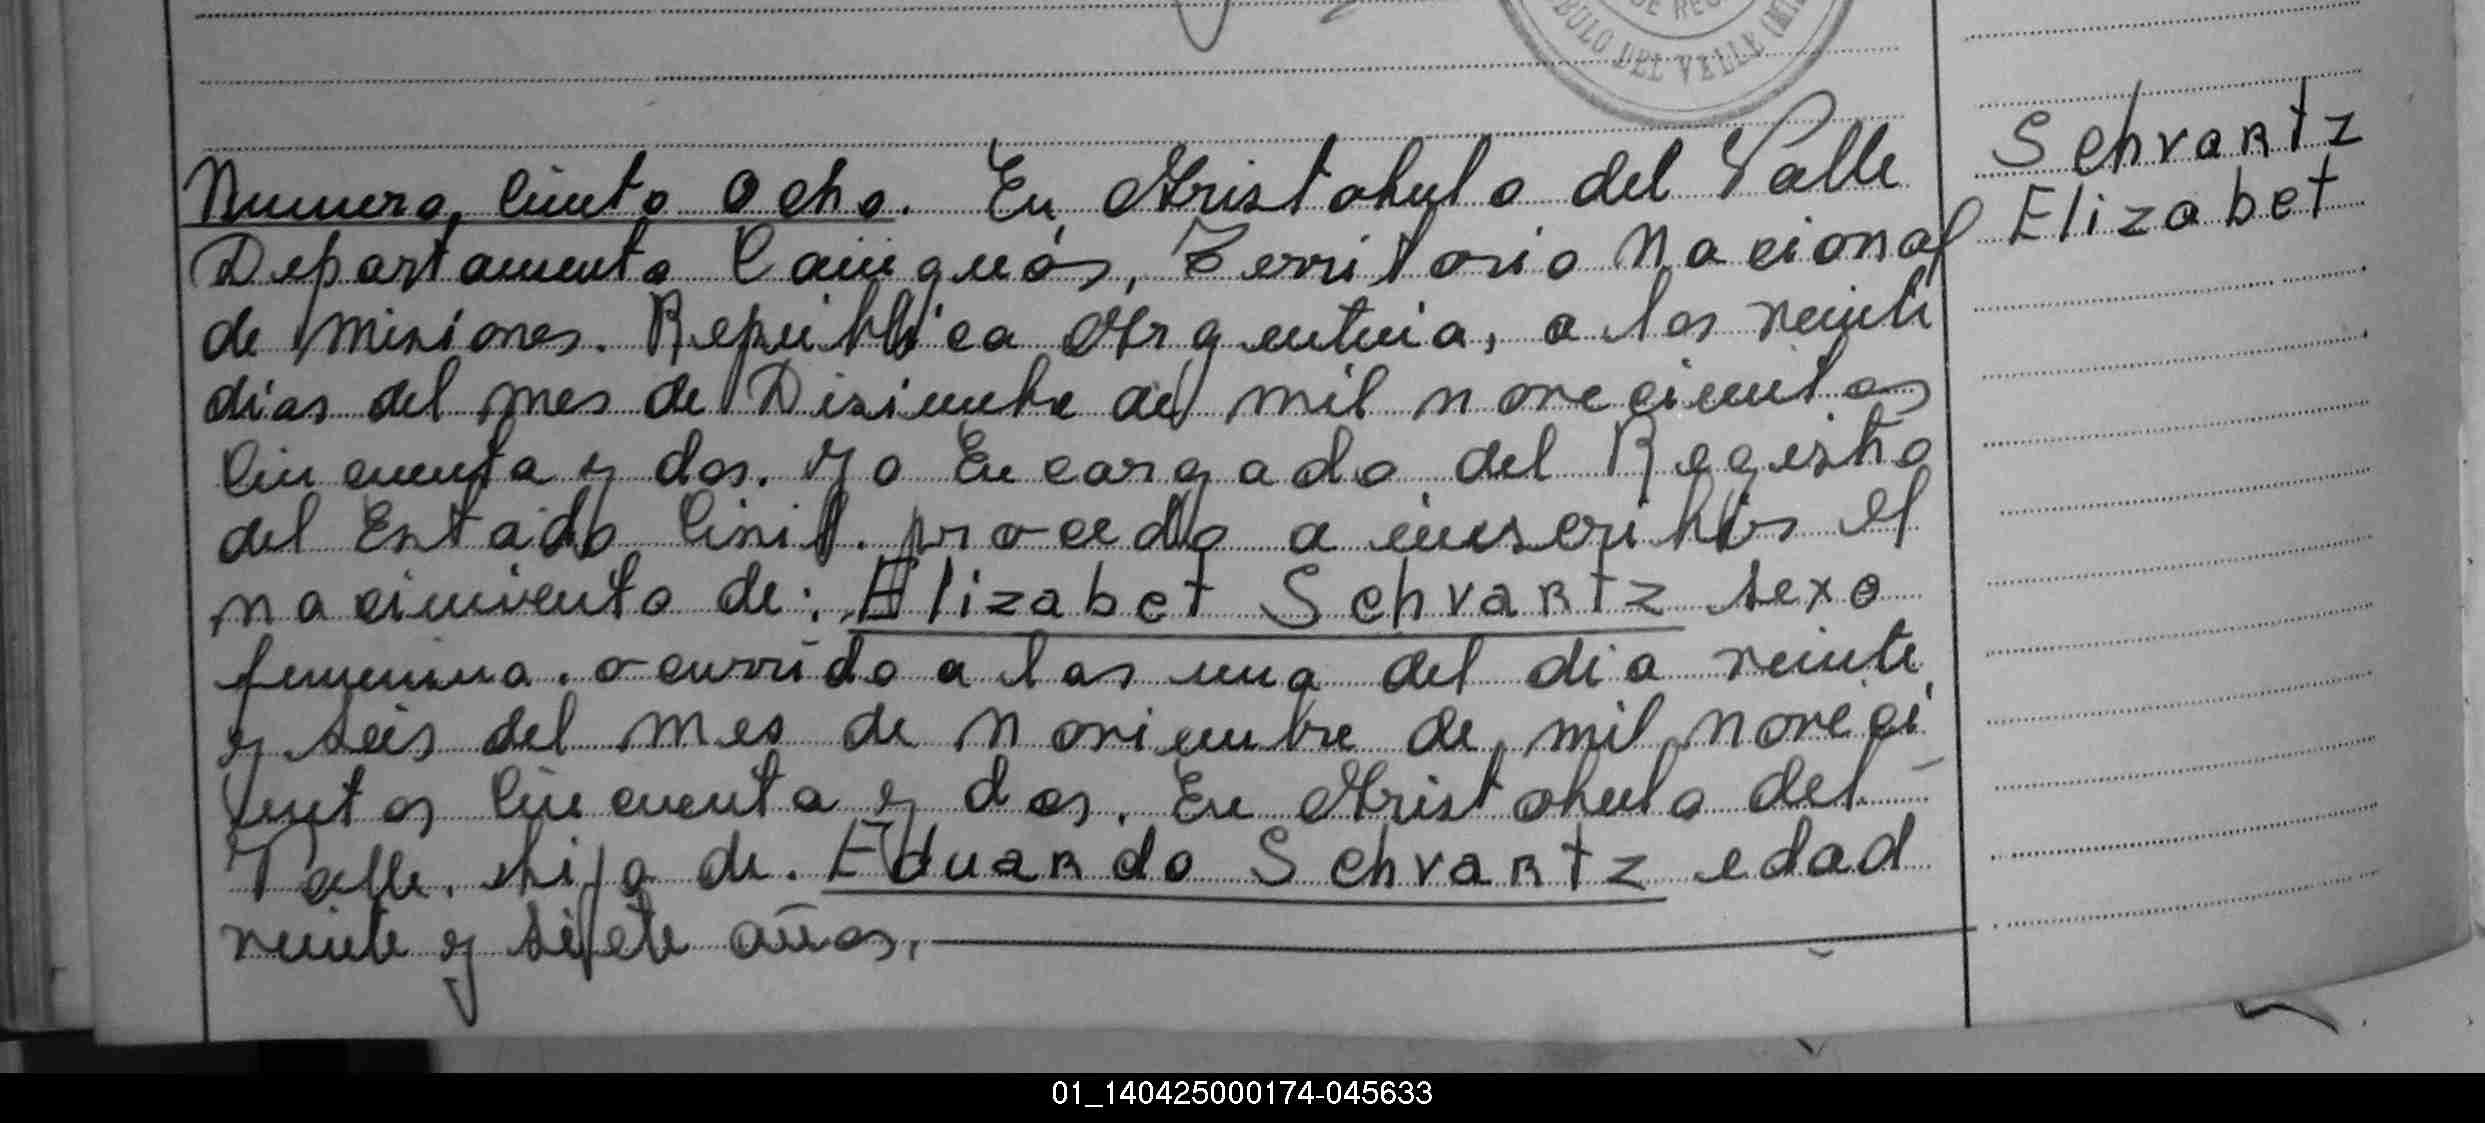 DE REG
BULO DEL VALLE (MI
Schvartz
Elizabet
Numero, Ciento Ocho. En Aristobulo del Valle
Departamento Cainguás, Territorio Nacional
de Misiones. República Argentina, a los veinti
dias del mes de Disiembre de mil novecientos
Cincuenta y dos. Yo Encargado del Regestro
del Estado Civil. procedo a inscribir el
nacimiento de: Elizabet Schvartz sexo
femenina. ocurrido a las una del dia veinte
y seis del mes de Noviembre de mil noveci
entos Cincuenta y dos. En Aristobulo del
Valle. hija de. Eduardo Schvartz edad
veinte y siete años,
01_140425000174-045633